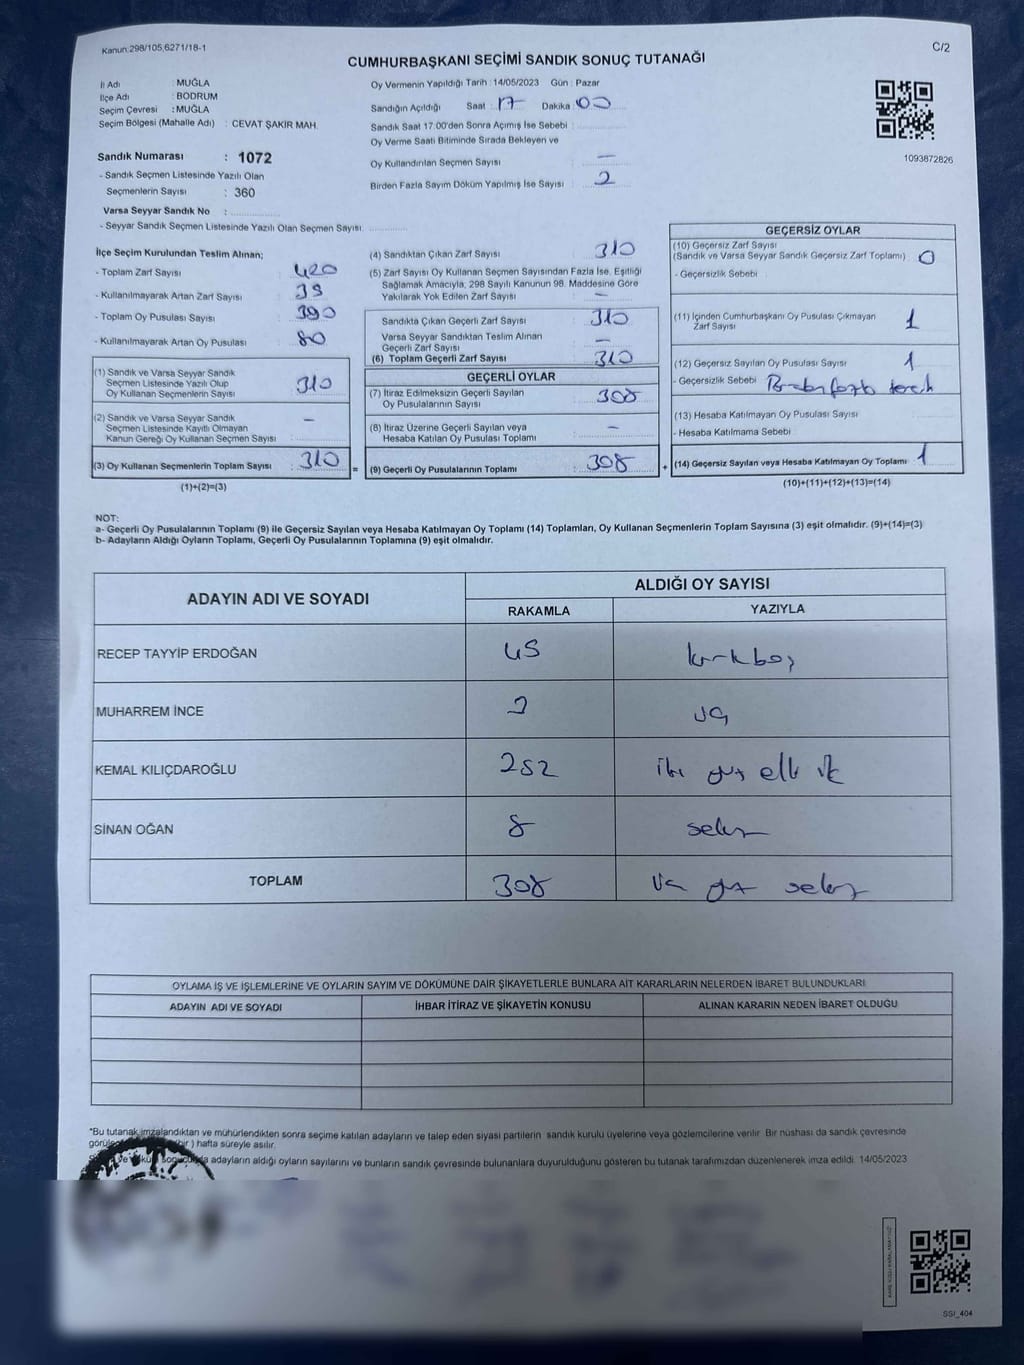 Kanun:298/105,6271/18-1
C/2
CUMHURBAŞKANI SEÇİMİ SANDIK SONUÇ TUTANAĞI
İl Adı : MUĞLA
İlçe Adı : BODRUM
Seçim Çevresi : MUĞLA
Seçim Bölgesi (Mahalle Adı) : CEVAT ŞAKİR MAH.
Sandık Numarası : 1072
- Sandık Seçmen Listesinde Yazılı Olan
Seçmenlerin Sayısı : 360
Varsa Seyyar Sandık No :
- Seyyar Sandık Seçmen Listesinde Yazılı Olan Seçmen Sayısı:
Oy Vermenin Yapıldığı Tarih :14/05/2023 Gün : Pazar
Sandığın Açıldığı Saat : 17 Dakika : 00
Sandık Saat 17.00'den Sonra Açımış İse Sebebi :
Oy Verme Saati Bitiminde Sırada Bekleyen ve
Oy Kullandırılan Seçmen Sayısı : —
Birden Fazla Sayım Döküm Yapılmış İse Sayısı : 2
1093872826
İlçe Seçim Kurulundan Teslim Alınan;
- Toplam Zarf Sayısı : 420
- Kullanılmayarak Artan Zarf Sayısı :
- Toplam Oy Pusulası Sayısı : 390
- Kullanılmayarak Artan Oy Pusulası : 80
(1) Sandık ve Varsa Seyyar Sandık
Seçmen Listesinde Yazılı Olup
Oy Kullanan Seçmenlerin Sayısı : 310
(2) Sandık ve Varsa Seyyar Sandık
Seçmen Listesinde Kayıtlı Olmayan
Kanun Gereği Oy Kullanan Seçmen Sayısı : —
(3) Oy Kullanan Seçmenlerin Toplam Sayısı : 310
(1)+(2)=(3)
=
(4) Sandıktan Çıkan Zarf Sayısı : 310
(5) Zarf Sayısı Oy Kullanan Seçmen Sayısından Fazla İse, Eşitliği
Sağlamak Amacıyla, 298 Sayılı Kanunun 98. Maddesine Göre
Yakılarak Yok Edilen Zarf Sayısı : —
Sandıkta Çıkan Geçerli Zarf Sayısı : 310
Varsa Seyyar Sandıktan Teslim Alınan
Geçerli Zarf Sayısı : —
(6) Toplam Geçerli Zarf Sayısı : 310
GEÇERLİ OYLAR
(7) İtiraz Edilmeksizin Geçerli Sayılan
Oy Pusulalarının Sayısı : 308
(8) İtiraz Üzerine Geçerli Sayılan veya
Hesaba Katılan Oy Pusulası Toplamı : —
(9) Geçerli Oy Pusulalarının Toplamı : 308
+
GEÇERSİZ OYLAR
(10) Geçersiz Zarf Sayısı
(Sandık ve Varsa Seyyar Sandık Geçersiz Zarf Toplamı) : 0
- Geçersizlik Sebebi :
(11) İçinden Cumhurbaşkanı Oy Pusulası Çıkmayan
Zarf Sayısı : 1
(12) Geçersiz Sayılan Oy Pusulası Sayısı : 1
- Geçersizlik Sebebi : Birden fazla tercih
(13) Hesaba Katılmayan Oy Pusulası Sayısı :
- Hesaba Katılmama Sebebi :
(14) Geçersiz Sayılan veya Hesaba Katılmayan Oy Toplamı : 1
(10)+(11)+(12)+(13)=(14)
NOT:
a- Geçerli Oy Pusulalarının Toplamı (9) ile Geçersiz Sayılan veya Hesaba Katılmayan Oy Toplamı (14) Toplamları, Oy Kullanan Seçmenlerin Toplam Sayısına (3) eşit olmalıdır. (9)+(14)=(3)
b- Adayların Aldığı Oyların Toplamı, Geçerli Oy Pusulalarının Toplamına (9) eşit olmalıdır.
ADAYIN ADI VE SOYADI
ALDIĞI OY SAYISI
RAKAMLA YAZIYLA
RECEP TAYYİP ERDOĞAN 45 kırkbeş
MUHARREM İNCE 3 üç
KEMAL KILIÇDAROĞLU 252 iki yüz elli iki
SİNAN OĞAN 8 sekiz
TOPLAM 308 üç yüz sekiz
OYLAMA İŞ VE İŞLEMLERİNE VE OYLARIN SAYIM VE DÖKÜMÜNE DAİR ŞİKAYETLERLE BUNLARA AİT KARARLARIN NELERDEN İBARET BULUNDUKLARI
ADAYIN ADI VE SOYADI İHBAR İTİRAZ VE ŞİKAYETİN KONUSU ALINAN KARARIN NEDEN İBARET OLDUĞU
*Bu tutanak imzalandıktan ve mühürlendikten sonra seçime katılan adayların ve talep eden siyasi partilerin sandık kurulu üyelerine veya gözlemcilerine verilir. Bir nüshası da sandık çevresinde
hafta süreyle asılır.
adayların aldığı oyların sayılarını ve bunların sandık çevresinde bulunanlara duyurulduğunu gösteren bu tutanak tarafımızdan düzenlenerek imza edildi. 14/05/2023
SSI_404